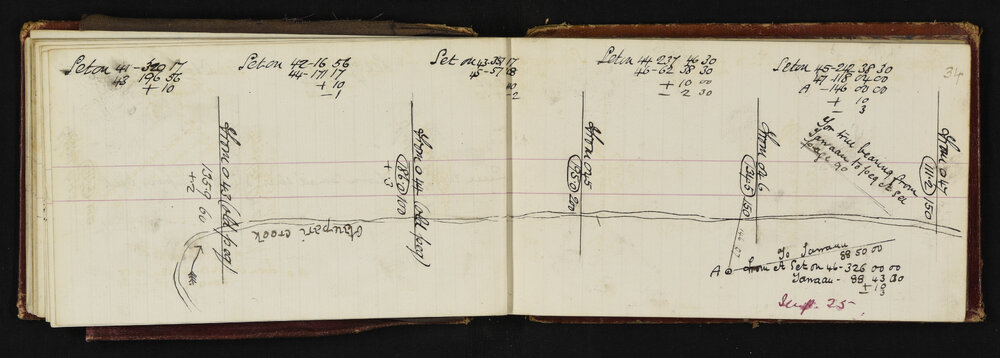 Set on 41-320 17
43 196 56
+ 10
Set on 42-16 56
44-171 17
+ 10
-1
Set on 43-351 17
45-57 48
-2
Set on 44-237 46 30
46-62 38 30
+ 10 00
- 2 30
Set on 45-242 38 30
47-118 04 00
A -146 00 00
+ 10
- 3
34
From 043 (old peg)
1359 60
+2
From 044 (old peg)
1860 100
+ 3
From 045
1350 200
From 046
1345 150
From 047
1112 150
For true bearing from
Tawaau to peg A see
page 90
Haupari creek
To Tawaau
88 50 00
A From A Set on 46-326 00 00
Tawaau - 88 43 00
± 10
3
Sept. 25-